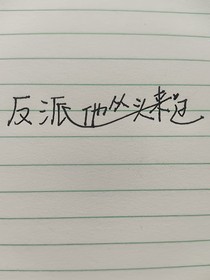 反派他从头来过